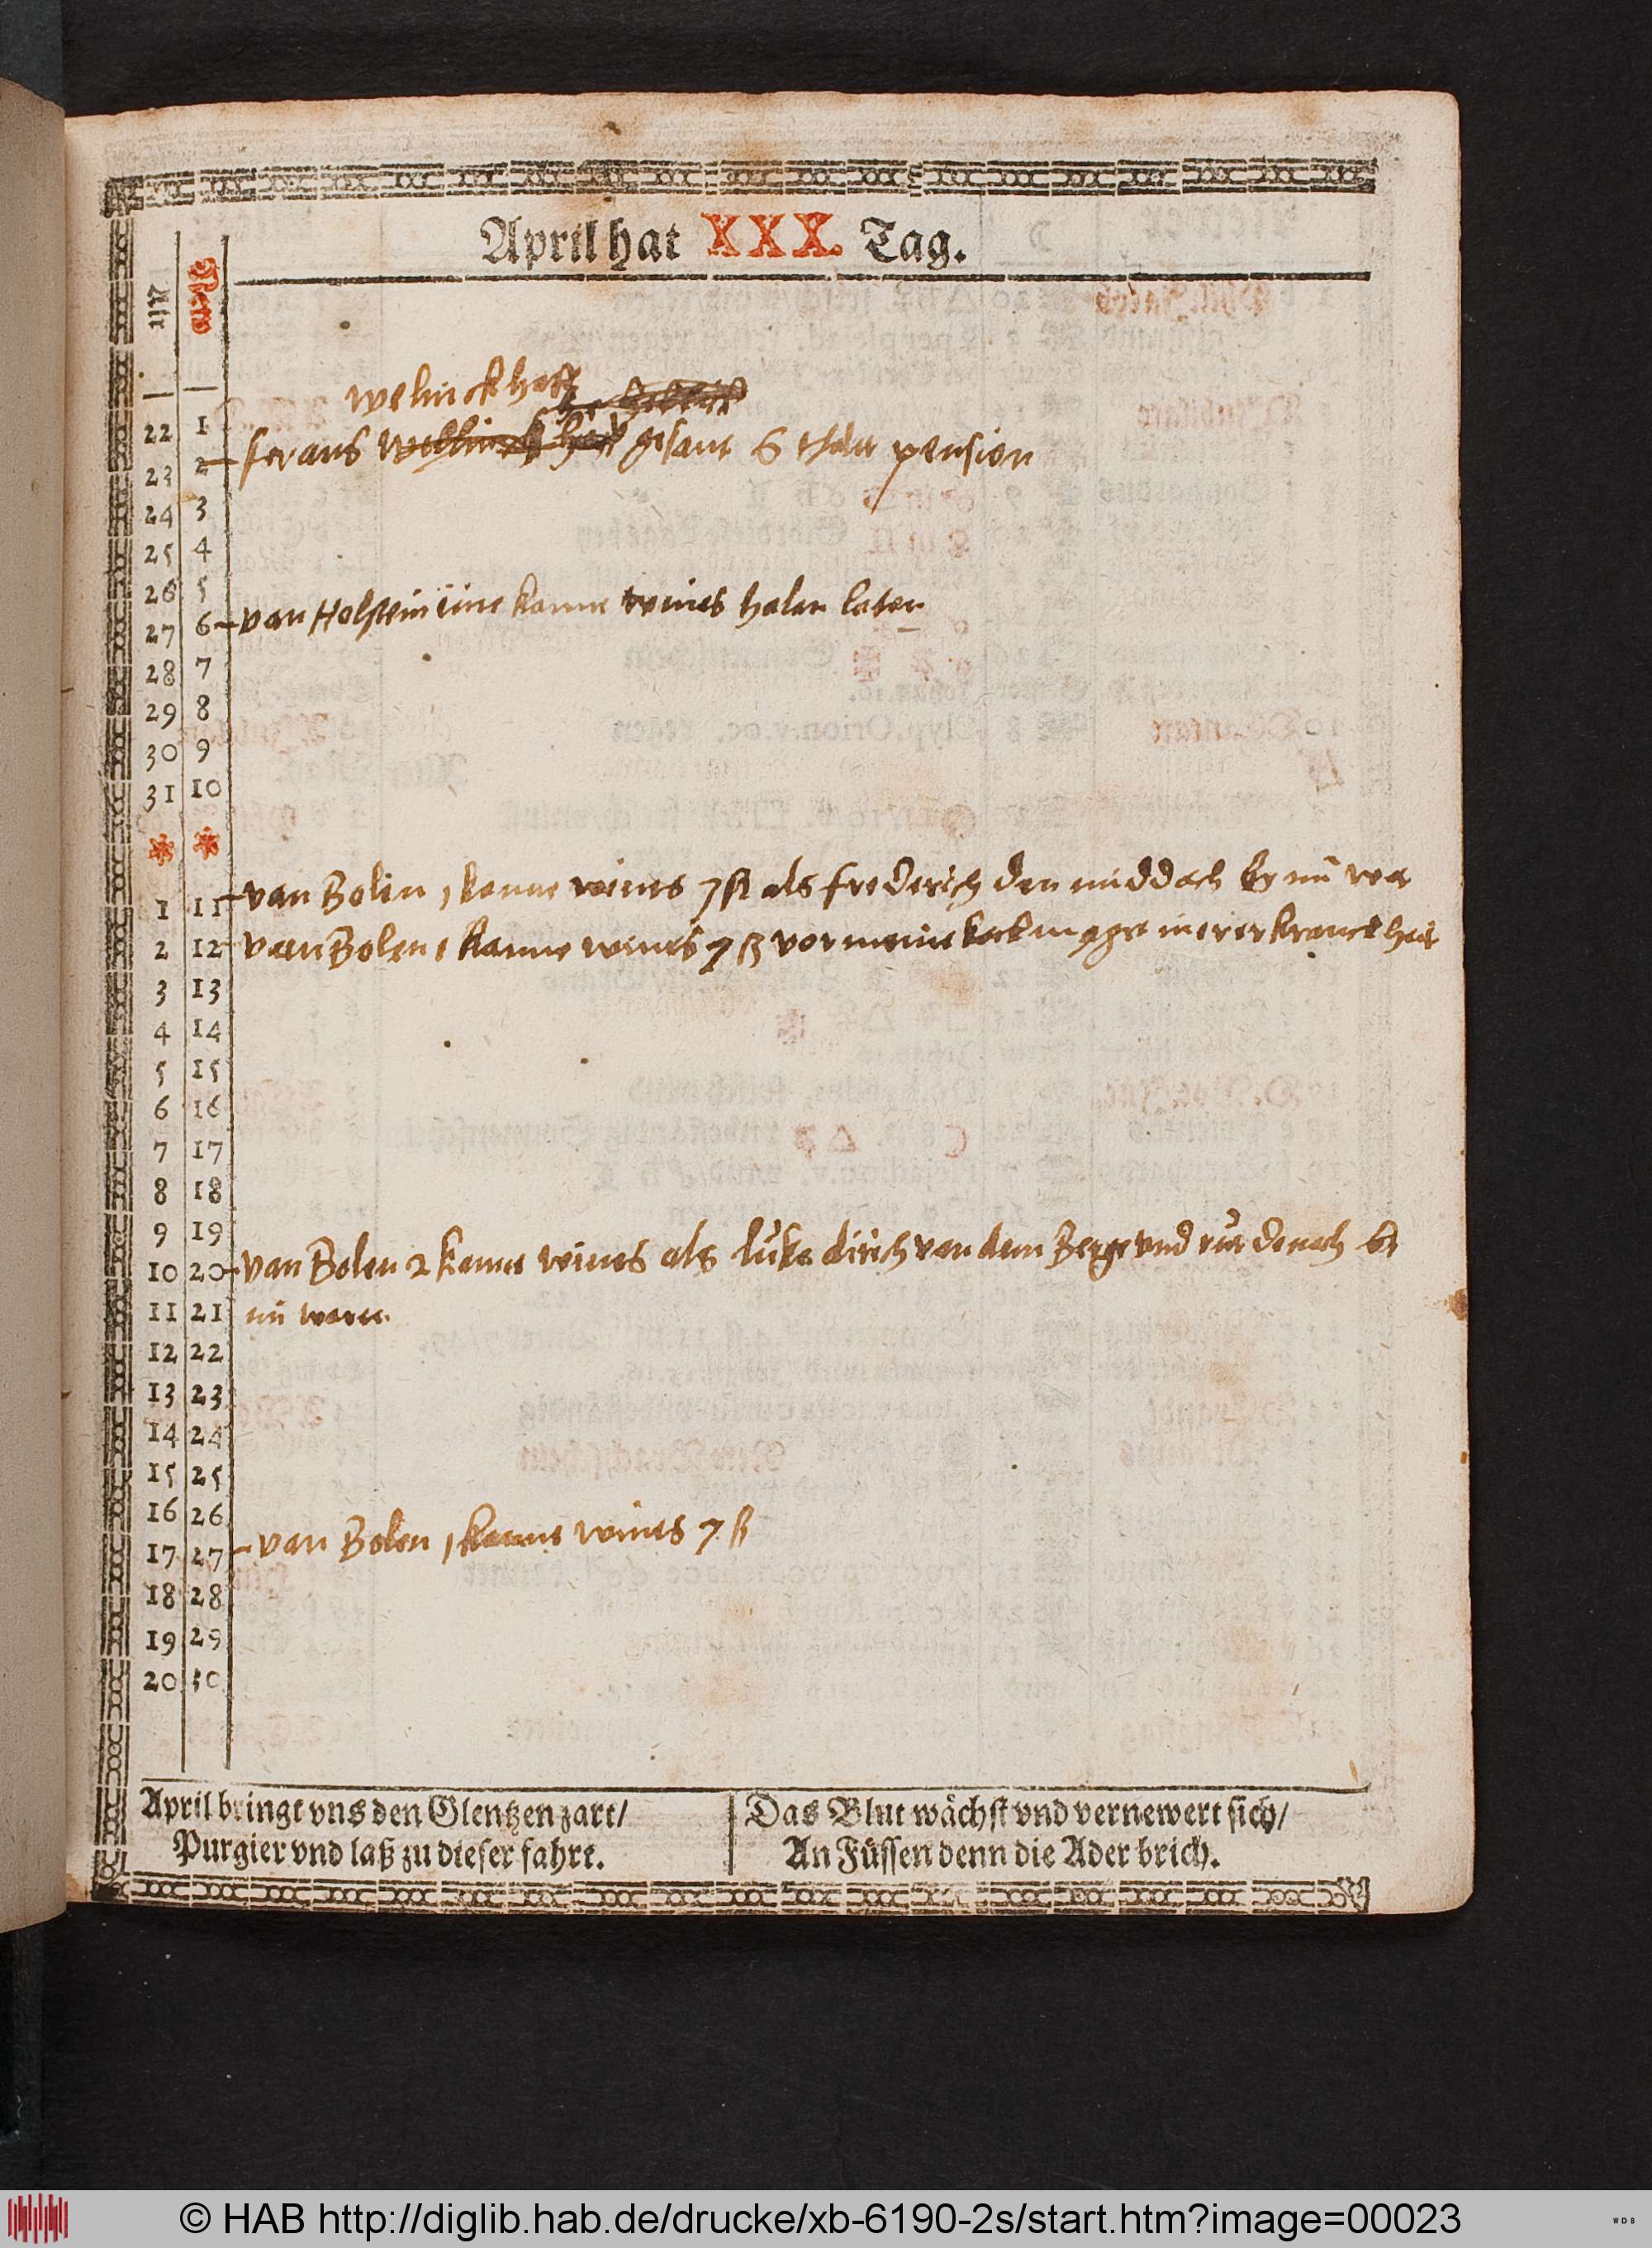 April hat XXX. Tag.
Alt New
welinckhoff
22 1
23 2 gesant 6 pension
24 3
25 4
26 5
27 6 van Holstein eine kanne wines halen laten
28 7
29 8
30 9
31 10
* *
1 11 van Bolen 1 kanne wines 7 ß als frederich den middach by mi was
2 12 van Bolen 1 kanne wines 7 ß vor meine in erer kranckheit
3 13
4 14
5 15
6 16
7 17
8 18
9 19
10 20 van Bolen 2 kanne wines als lüke dirich van dem Berge vnd by
11 21 mi waren
12 22
13 23
14 24
15 25
16 26
17 27 van Bolen 1 kanne wines 7 ß
18 28
19 29
20 30
April bringt vns den Glentzen zart/
Purgier vnd laß zu dieser fahrt.
Das Blut wächst vnd vernewert sich/
An Füssen denn die Ader brich.
© HAB http://diglib.hab.de/drucke/xb-6190-2s/start.htm?image=00023
WDB